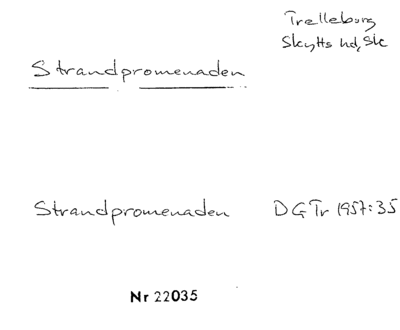 Trelleborg
Skytts hd, Sk
Strandpromenaden
Strandpromenaden DGTr 1957:35
Nr 22035